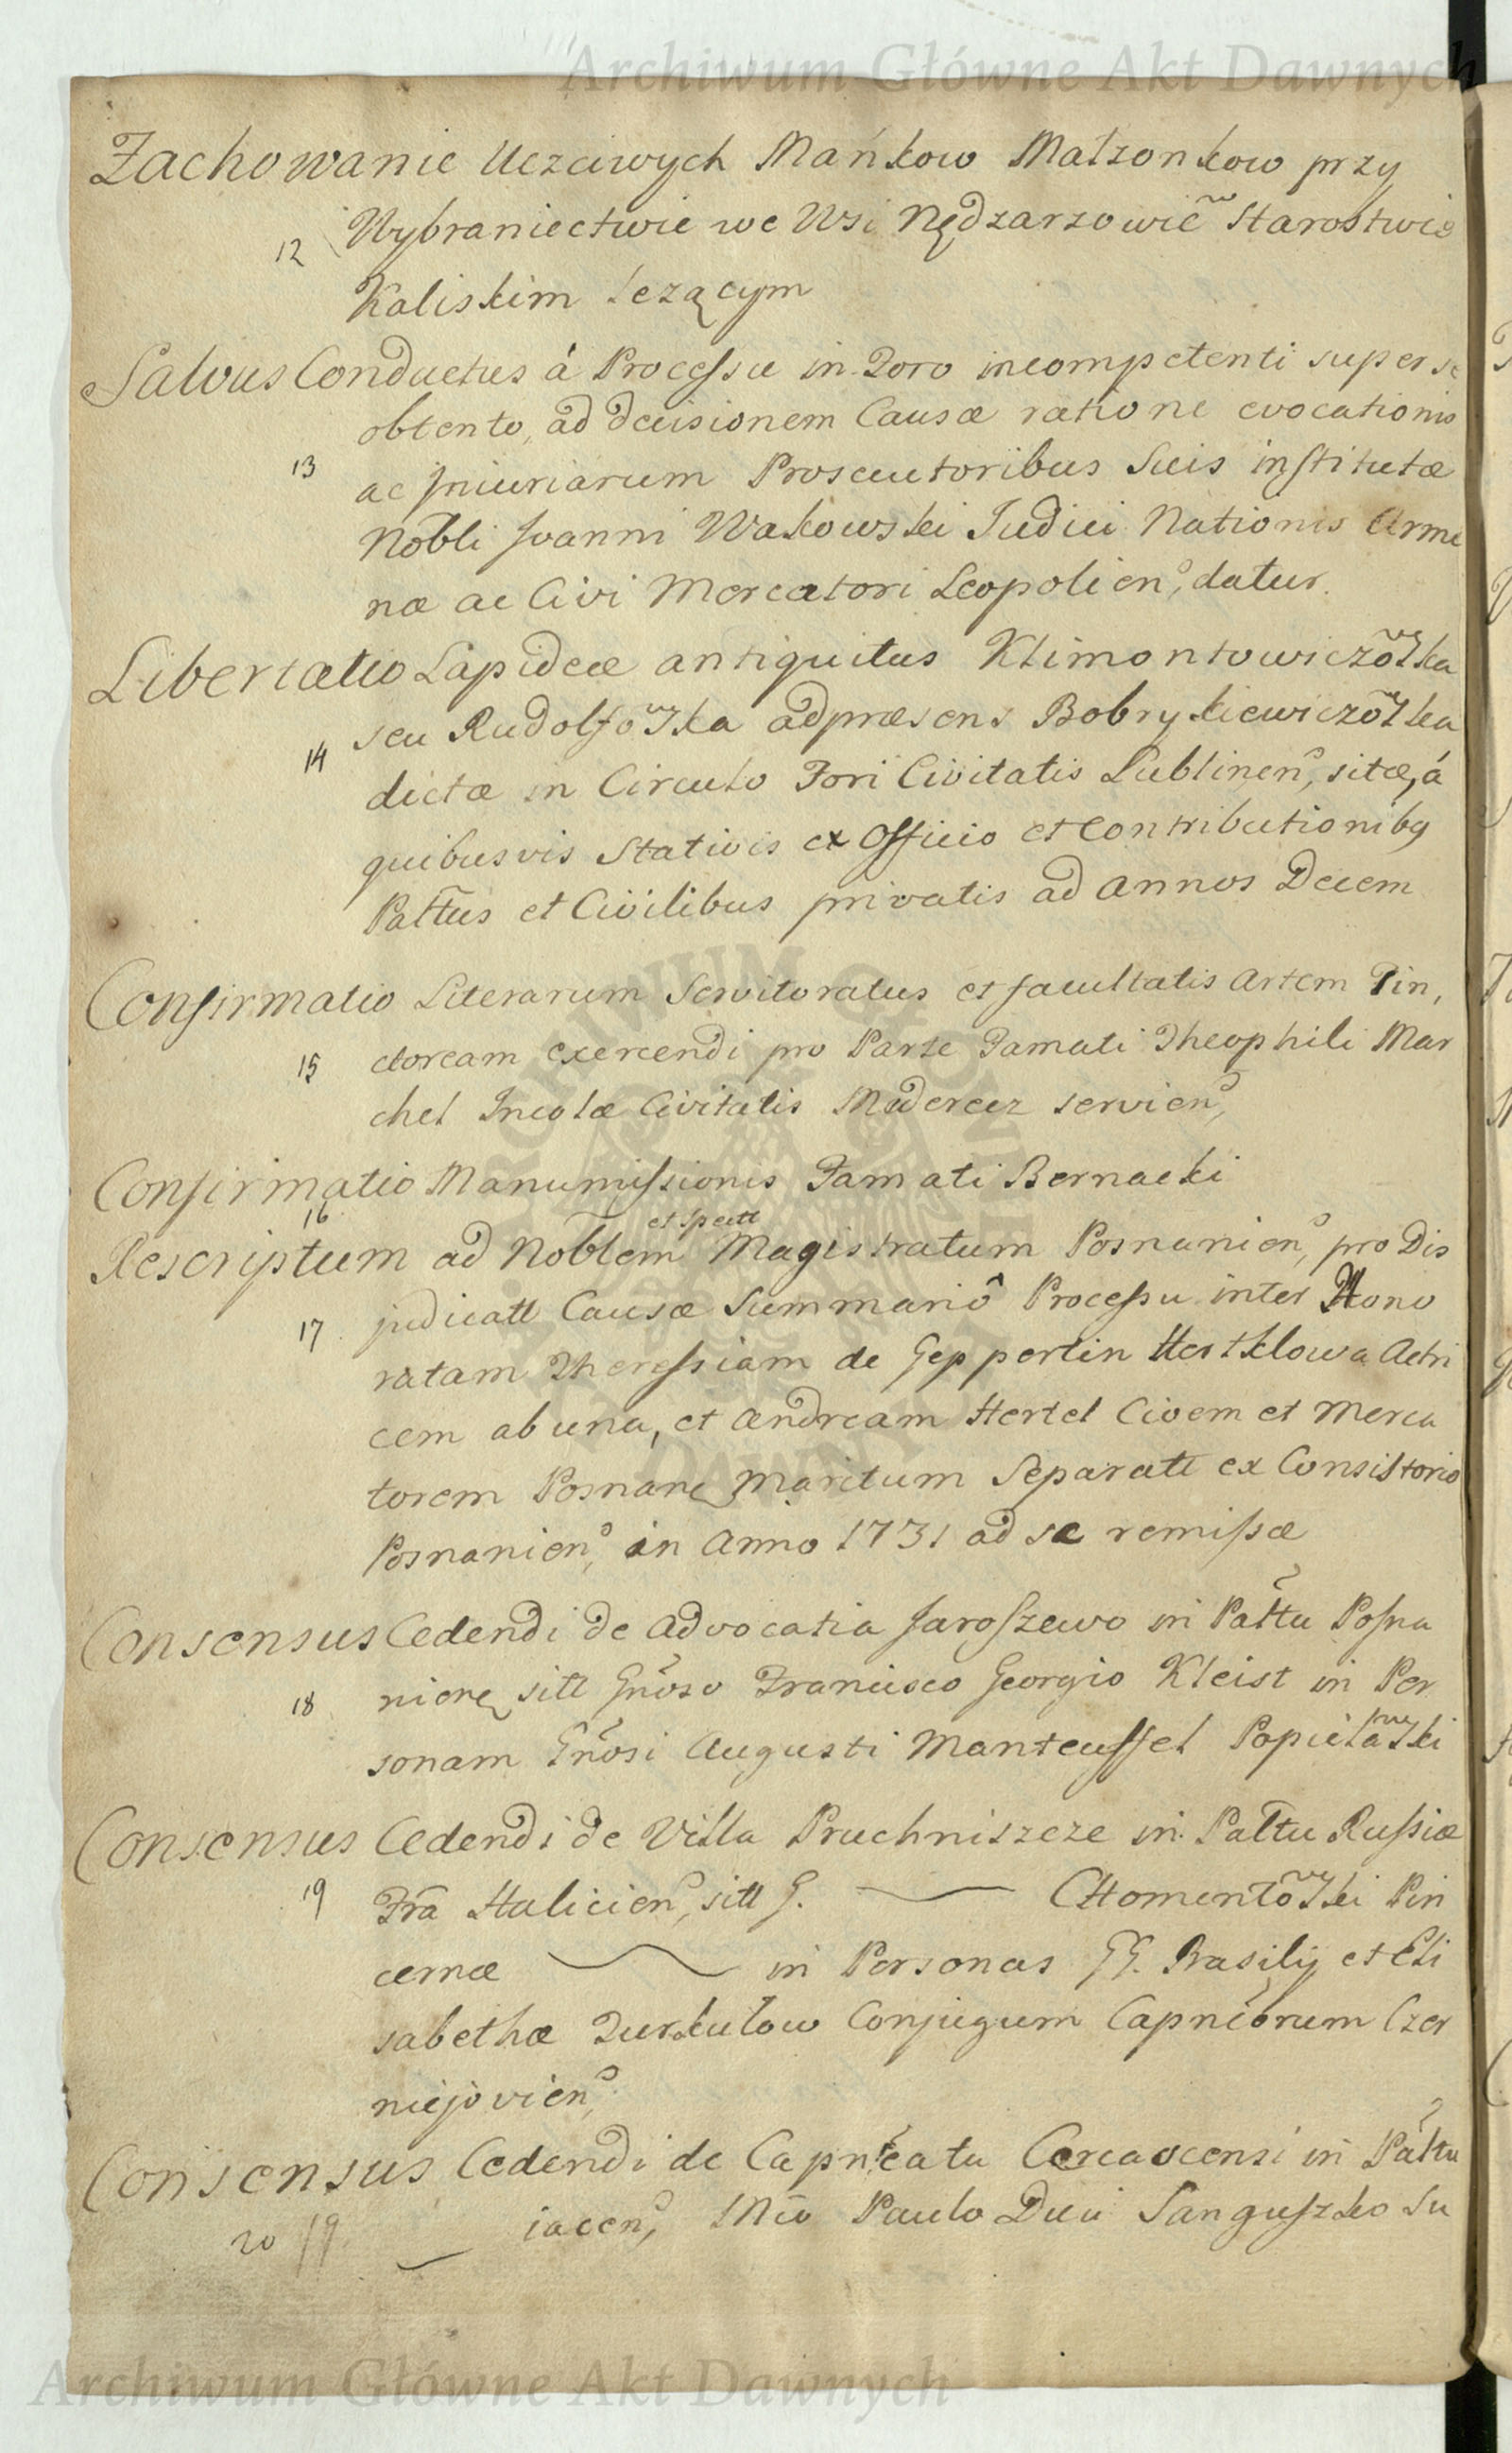 Archiwum Główne Akt Dawnych
Zachowanie Uczciwych Mańkow Małzonkow przy
12 Wybraniectwie we Wsi Nędzarzowic̃ Starostwie
Kaliskim lezącym
Salvus Conductus á Processu in Foro incompetenti super se
obtento, ad decisionem Causæ ratione evocationis
13 ac Iniuriarum Prosecutoribus Suis institutæ
Nobli Joanni Wakowski Judici Nationis Arme
næ ac Civi Mercatori Leopolien, datur.
Libertatio Lapideæ antiquitus Klimontowiczõska
seu Rudolfõska ad præsens Bobrykiewiczõska
14 dictæ in Circulo Fori Civitatis Lublinen, sitæ, á
quibusvis Stativis ex Officio et Contributionibq
Pałtus et Civilibus privatis ad Annos Decem
Confirmatio Literarum Servitoratus et facultatis Artem Tin,
15 ctoream exercendi pro Parte Famati Theophili Mar
chel Incolæ Civitatis servien,
Confirmatio Manumissionis Famati Bernacki
16
et Spectt
Rescriptum ad Noblem Magistratum Posnanien, pro Dis
17 judicatt Causæ Summariô Processu inter Hono
ratam Theressiam de Geppertin Hertklowa Actri
cem ab una, et Andream Hertel Civem et Merca
torem Posnanē Maritum Separatt ex Consistorio
Posnanien, in Anno 1731 ad se remissæ
Consensus Cedendi de Advocatia Jaroszewo in Pałtu Posna
18 niene sitt Gñoso Francisco Georgio Kleist in Per
sonam Gñosi Augusti Manteuffel Popielaski
Consensus Cedendi de Villa Pruchniszcze in Pałtu Russiæ
19 Fra Halicien, sitt G. Chomentõski Pin
cernæ in Personas GG. Basilij et Eli
sabethæ Turkułow Conjugum Capneorum Czer
niejovien,
Consensus Cedendi de Capneatu Cercacensi in Pałtu
20 19 iacen, Mco Paulo Duci Sanguszko Su
Archiwum Główne Akt Dawnych